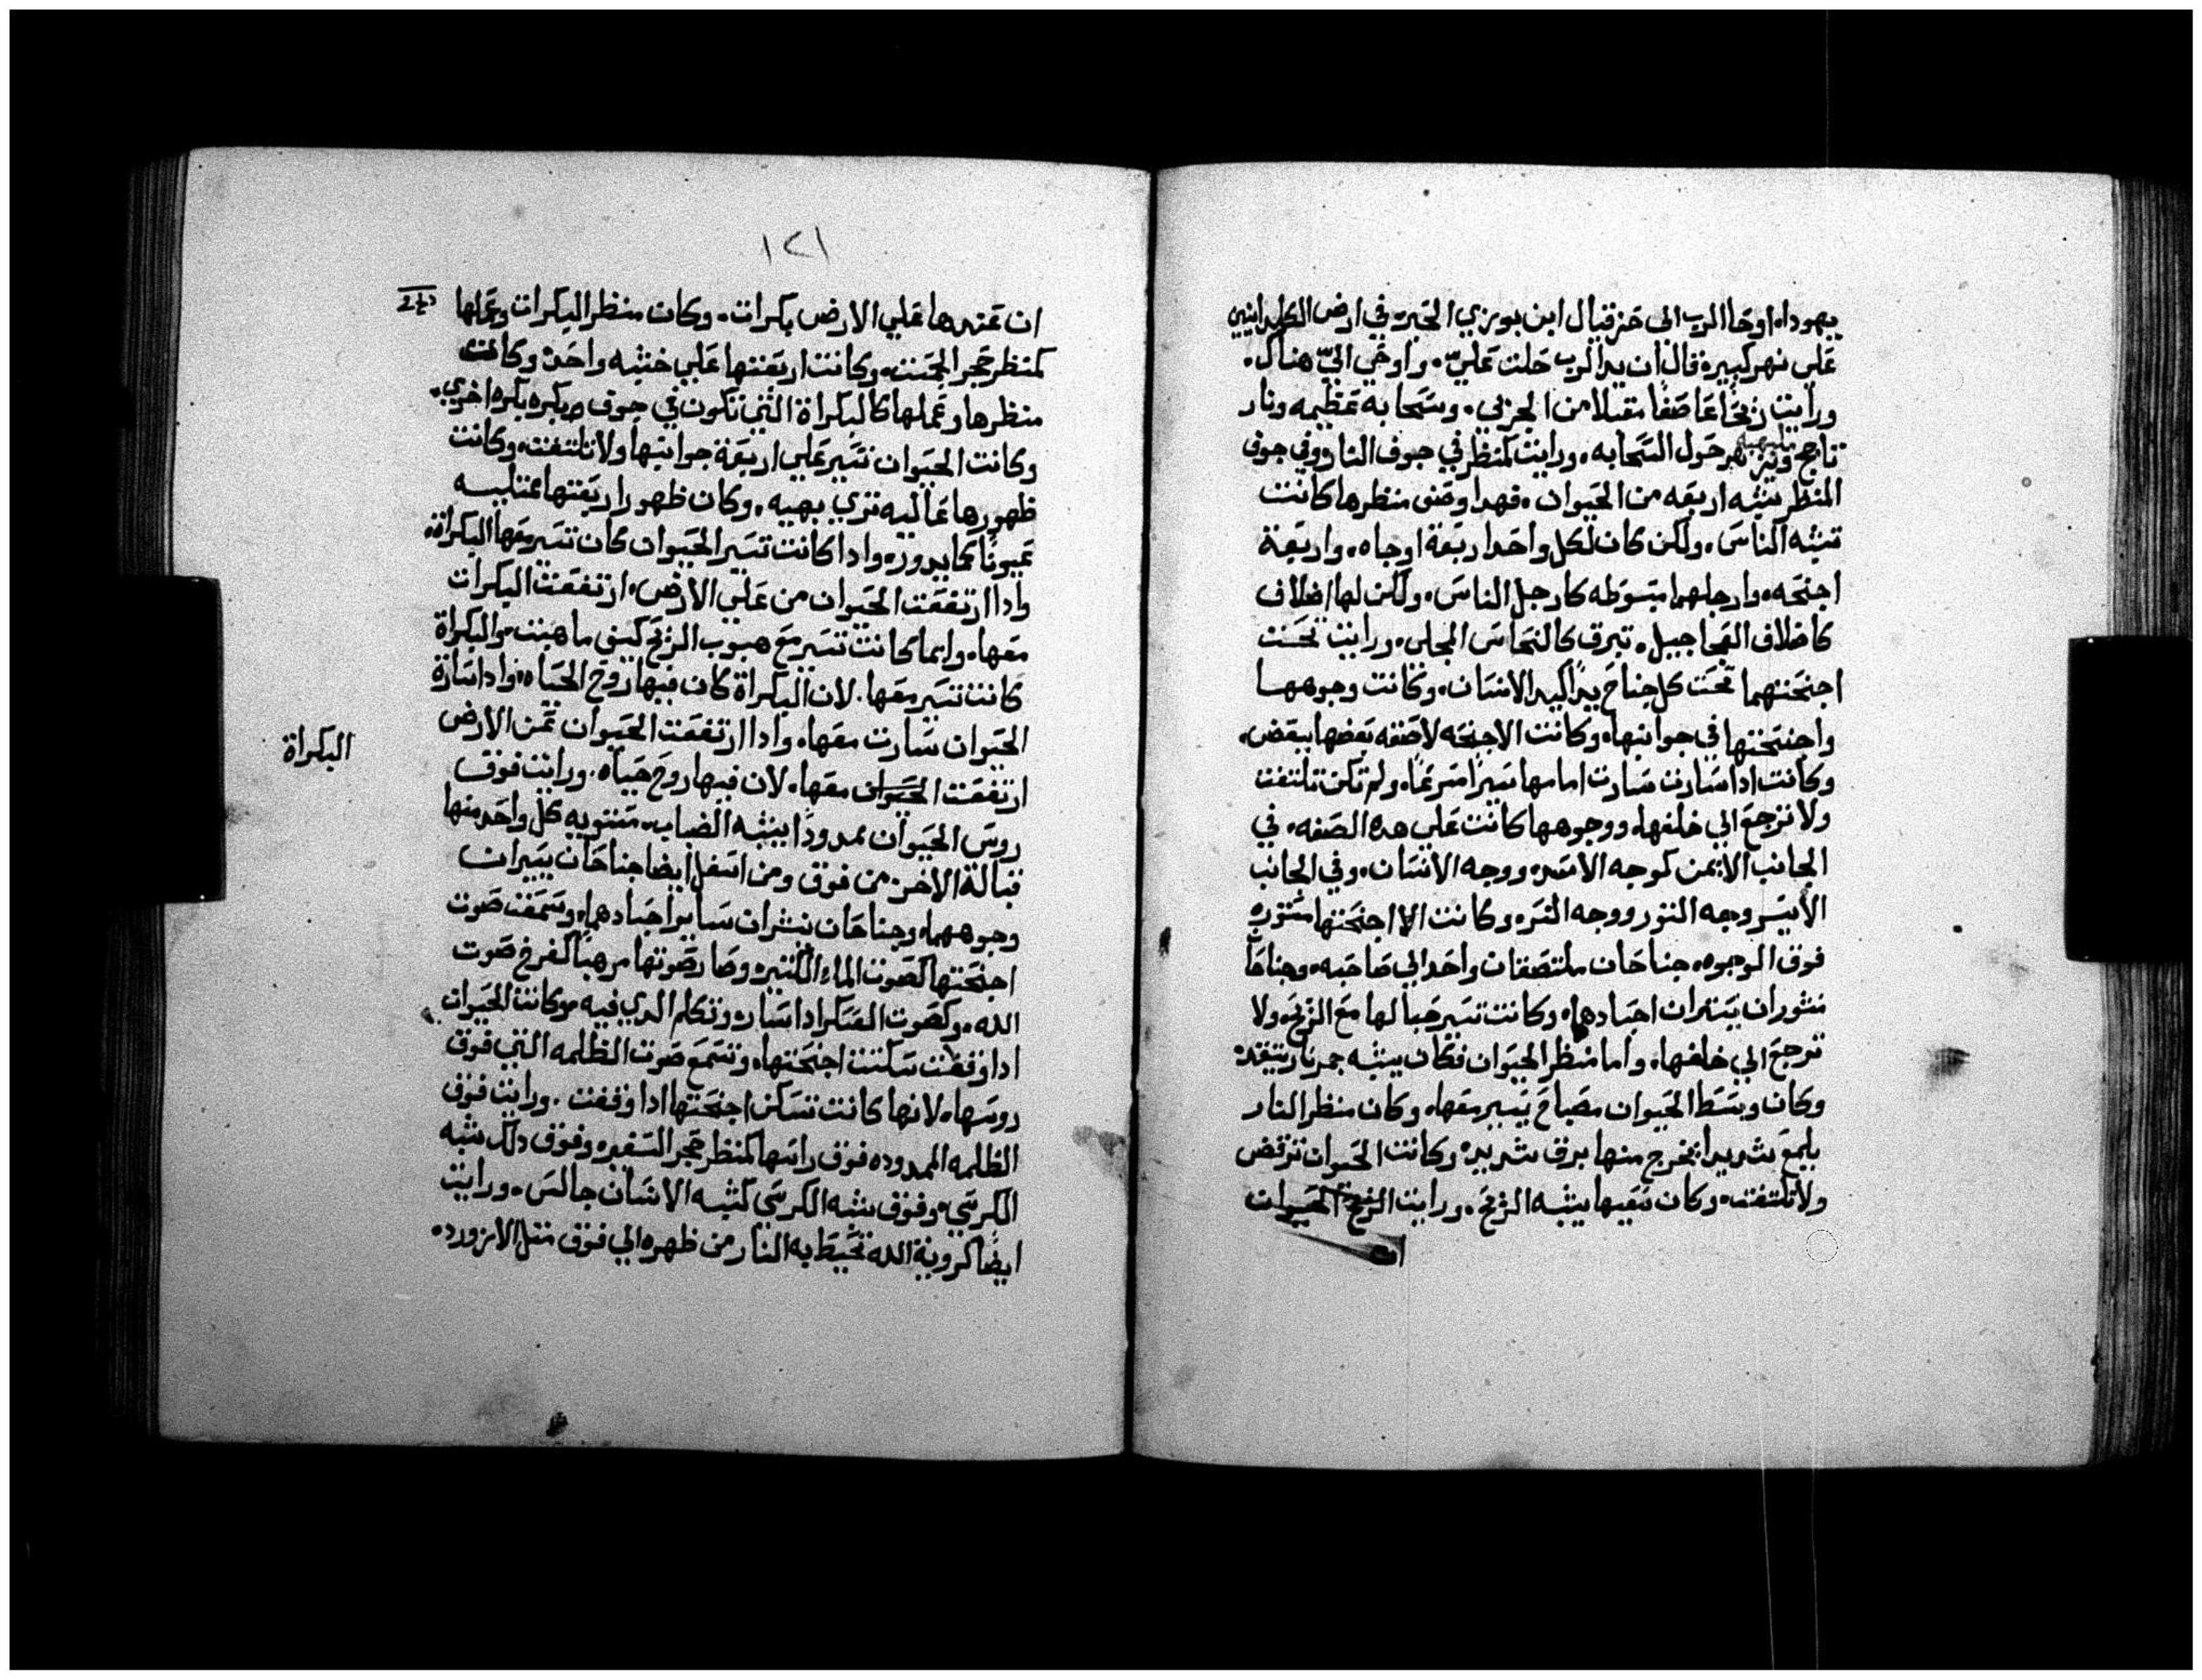 يهوداه اوحا الرب الى حزقيال ابن بوزي الحبره في ارض الكلدانيين
علي نهر كبيره قال ان يد الرب حلت عليّ. واوحي اليّ هناك.
ورايت زيحًا عاصفًا مقبلا من الجربي. وسحابه عظيمه ونار
تاجج حول السحابه. ورايت كمنظر في جوف النار وفي جوف
المنظر يشبه اربعه من الحيوان. فهدا وصف منظرها كانت
تشبه الناس. ولكن كان لكل واحد اربعة اوجاه. واربعة
اجنحه. وارجلهما مبسوطه كارجل الناس. ولكن لها اضلاف
كاضلاف العجاجيل. تبرق كالنحاس المجلى. ورايت تحت
اجنحتهما تحت كل جناح يدًا كيد الانسان. وكانت وجوهها
واجنحتها في جوانبها. وكانت الاجنحه لاصقه بعضها ببعض.
وكانت ادا سارت سارت امامها سيرًا مسرعًا. ولم تكن تلتفت
ولا ترجع الي خلفها. ووجوهها كانت علي هده الصفه. في
الجانب الايمن كوجه الاسد. ووجه الانسان. وفي الجانب
الايسر وجه التور ووجه النسر. وكانت اجنحتها منتوره
فوق الوجوه. جناحان ملتصقان واحد الي صاحبه. وجناحا
منثوران يستران اجسادهما. وكانت تسير حيالها مع الريح. ولا
ترجع الي خلفها. واما منظر الحيوان فكان يشبه جمر نار يتقد.
وكان وسط الحيوان مصباح يسير معها. وكان منظر النار
يلمع شديدا يخرج منها برق شديد. وكانت الحيوان تركض
ولا تلتفت. وكان سعيها يشبه الريح. ورايت الحيوان
ان
١٢١
ان عندها علي الارض بكرات. وكان منظر البكرات وعملها
كمنظر حجر الجست. وكانت اربعتها علي خشبه واحده وكانت
منظرها وعملها كالبكراة التي تكون في جوف بكره بكره اخري.
وكانت الحيوان تسير علي اربعة جوانبها ولا تلتفت. وكانت
ظهورها عاليه تري بهيه. وكان ظهور اربعتها ممتليه
عيونًا كما يدور. وادا كانت تسير الحيوان كان تسير معها البكراة.
وادا ارتفعت الحيوان من علي الارض. ارتفعت البكرات
معها. وانما كانت تسير مع هبوب الريح كيف ما هبت. والبكراة
كانت تسير معها. لان البكراة كان فيها روح الحياه. وادا سارة
الحيوان سارت معها. وادا ارتفعت الحيوان عن الارض
ارتفعت الحيوان معها. لان فيها روح حياه. ورايت فوق
البكراة
روس الحيوان ممدودًا يشبه الضباب. مستويه كل واحد منها
قبالة الاخر من فوق ومن اسفل ايضا جناحان يستران
وجوههما. وجناحان نشران ساير اجسادهما. وسمعت صوت
اجنحتها كصوت الماء الكتير. وصار صوتها مرهبًا كفرخ صوت
الله. وكصوت العسكر ادا سار. وتكلم الدي فيه. وكانت الحيوان
ادا وقفت سكنت اجنحتها. وتسمع صوت الظلمه التي فوق
روسها. لانها كانت تسكن اجنحتها ادا وقفت. ورايت فوق
الظلمه الممدوده فوق راسها كمنظر حجر السفير. وفوق دلك شبه
الكرسي. وفوق شبه الكرسي كشبه الانسان جالس. ورايت
ايضًا كروية الله تحيط به النار من ظهره الي فوق متل الازورد.